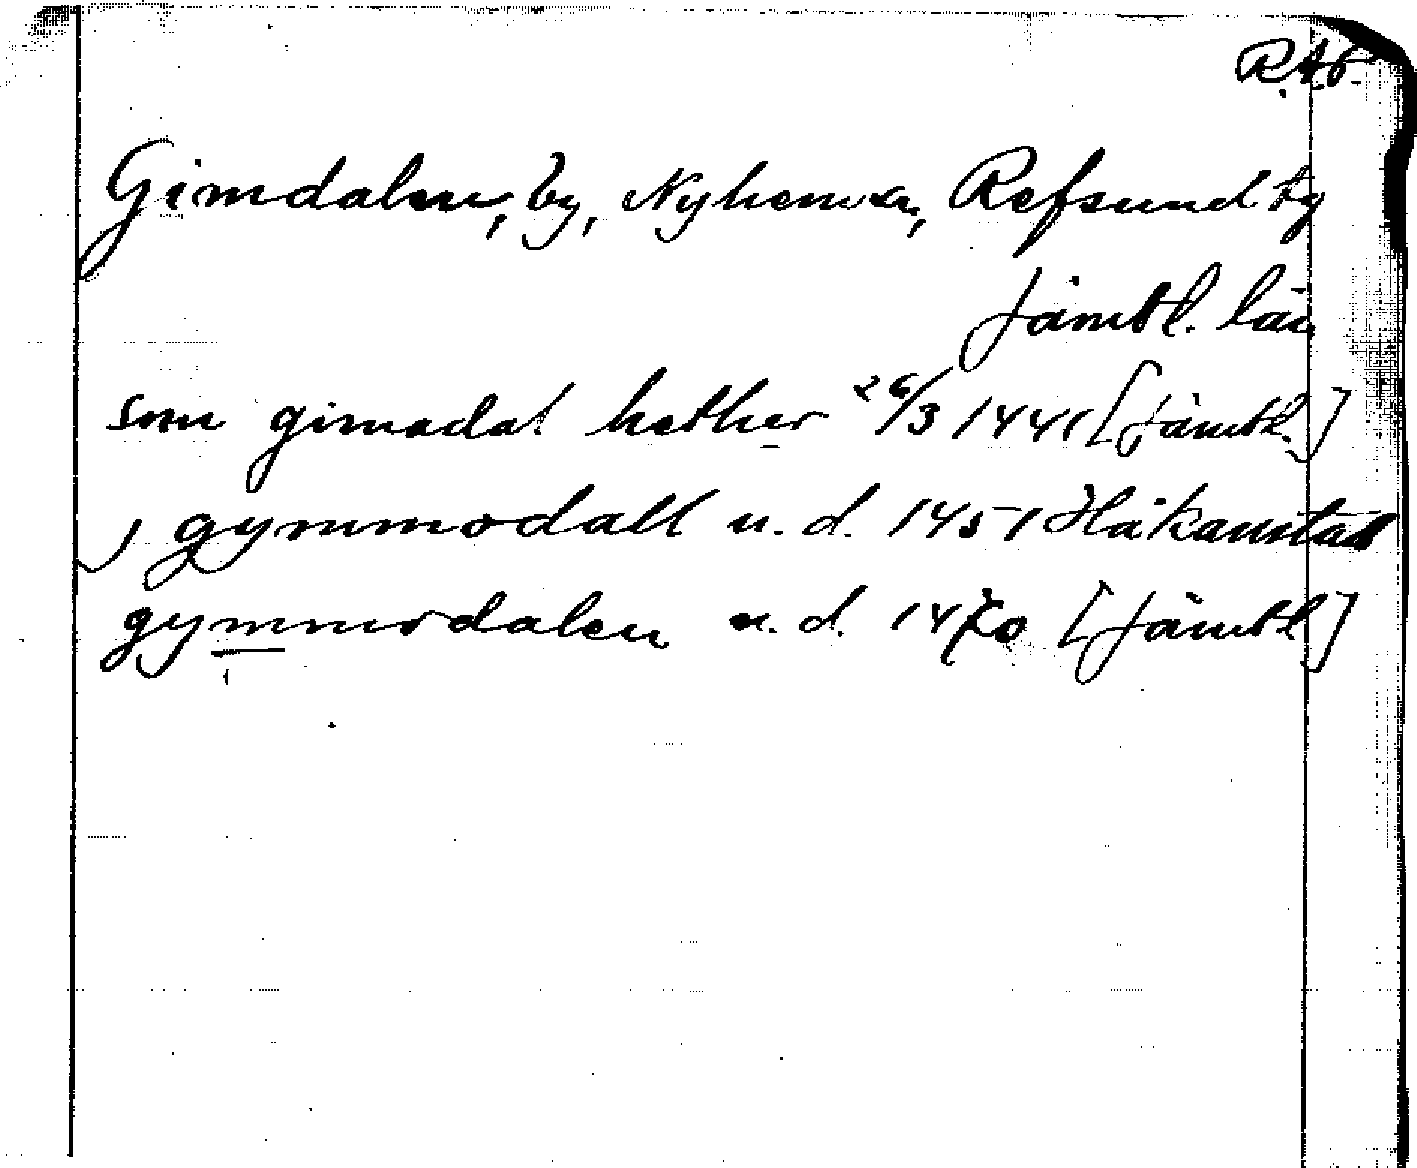 R.A.P.
Gimdalen, by, Nyhems sn, Refsund tg
Jämtl. län
som gimadal hether 26/3 1441 [Jämtl.]
j gymmodall u.d. 1451 Håkanstad
gymmodalen u.d. 1470 [Jämtl]